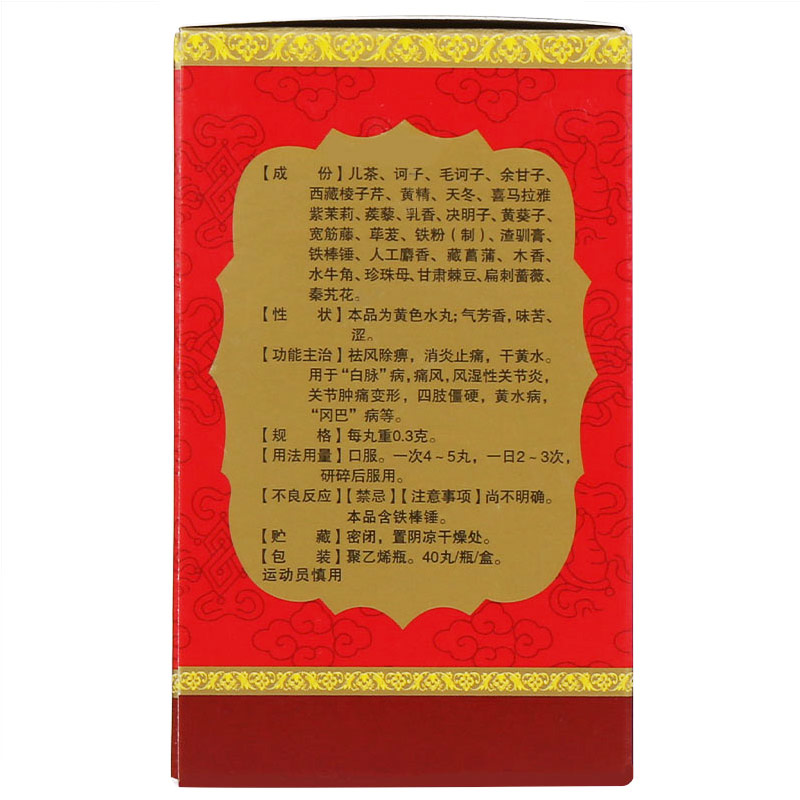 【成　份】儿茶、诃子、毛诃子、余甘子、
西藏棱子芹、黄精、天冬、喜马拉雅
紫茉莉、蒺藜、乳香、决明子、黄葵子、
宽筋藤、荜茇、铁粉（制）、渣驯膏、
铁棒锤、人工麝香、藏菖蒲、木香、
水牛角、珍珠母、甘肃棘豆、扁刺蔷薇、
秦艽花。
【性　状】本品为黄色水丸；气芳香，味苦、
涩。
【功能主治】祛风除痹，消炎止痛，干黄水。
用于“白脉”病，痛风，风湿性关节炎，
关节肿痛变形，四肢僵硬，黄水病，
“冈巴”病等。
【规　格】每丸重0.3克。
【用法用量】口服。一次4～5丸，一日2～3次，
研碎后服用。
【不良反应】【禁忌】【注意事项】尚不明确。
本品含铁棒锤。
【贮　藏】密闭，置阴凉干燥处。
【包　装】聚乙烯瓶。40丸/瓶/盒。
运动员慎用